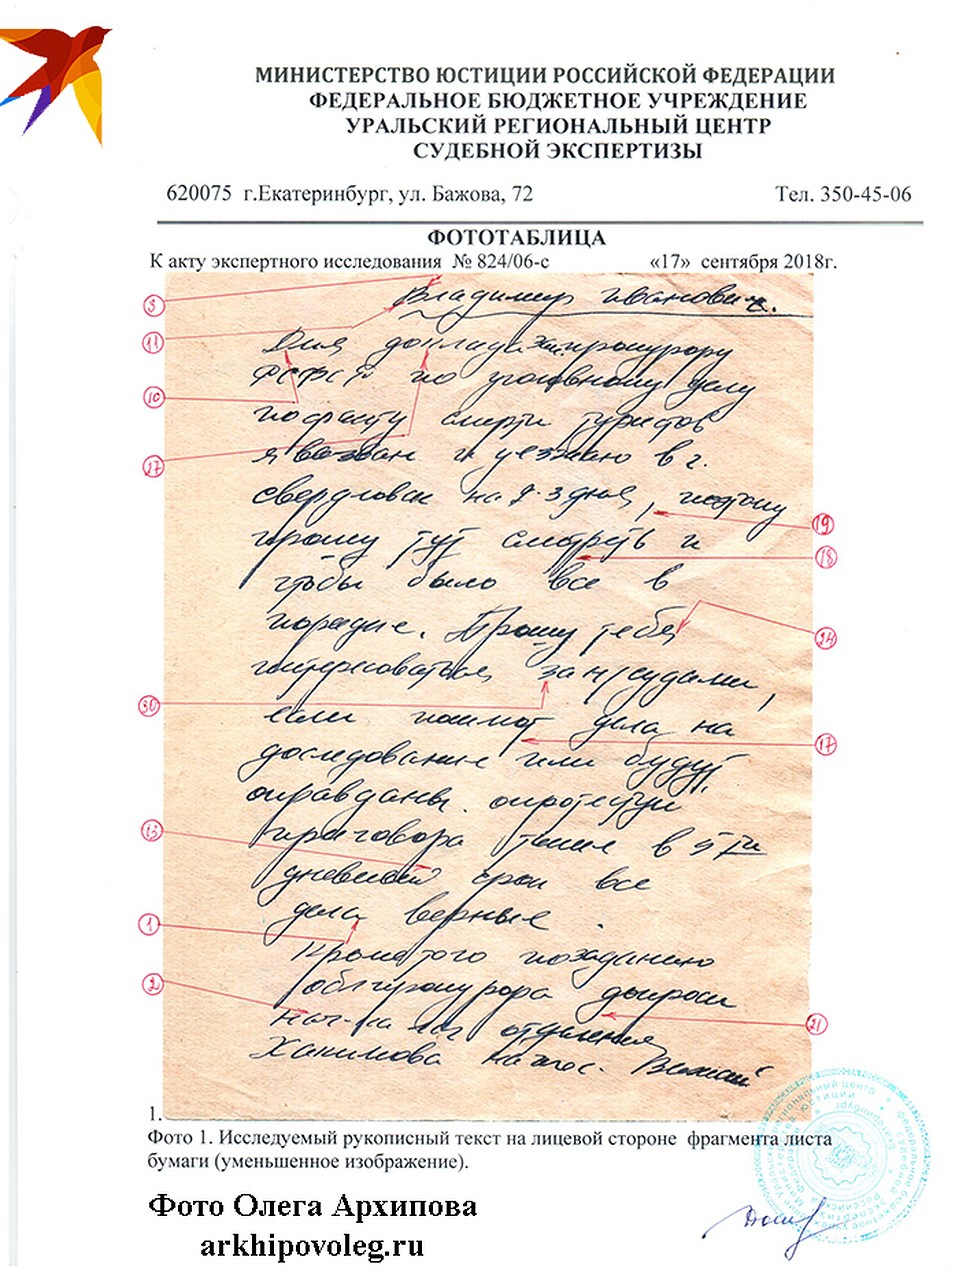 МИНИСТЕРСТВО ЮСТИЦИИ РОССИЙСКОЙ ФЕДЕРАЦИИ
ФЕДЕРАЛЬНОЕ БЮДЖЕТНОЕ УЧРЕЖДЕНИЕ
УРАЛЬСКИЙ РЕГИОНАЛЬНЫЙ ЦЕНТР
СУДЕБНОЙ ЭКСПЕРТИЗЫ
620075 г.Екатеринбург, ул. Бажова, 72 Тел. 350-45-06
ФОТОТАБЛИЦА
К акту экспертного исследования № 824/06-с «17» сентября 2018г.
Владимир Иванович.
Для доклада зам.прокурору
РСФСР по уголовному делу
по факту смерти туристов
я вызван и уезжаю в г.
Свердловск на 2-3 дня, поэтому
прошу тут смотреть и
чтобы было все в
порядке. Прошу тебя
интересоваться за н/судами,
если пошлют дела на
доследование или будут
оправданы. опротестуй
приговора также в 5ти
дневный срок все
дела верные.
Кроме того по заданию
облпрокурора допроси
нач-ка отделения
Хакимова на пос. Вижай
1.
Фото 1. Исследуемый рукописный текст на лицевой стороне фрагмента листа
бумаги (уменьшенное изображение).
Фото Олега Архипова
arkhipovoleg.ru